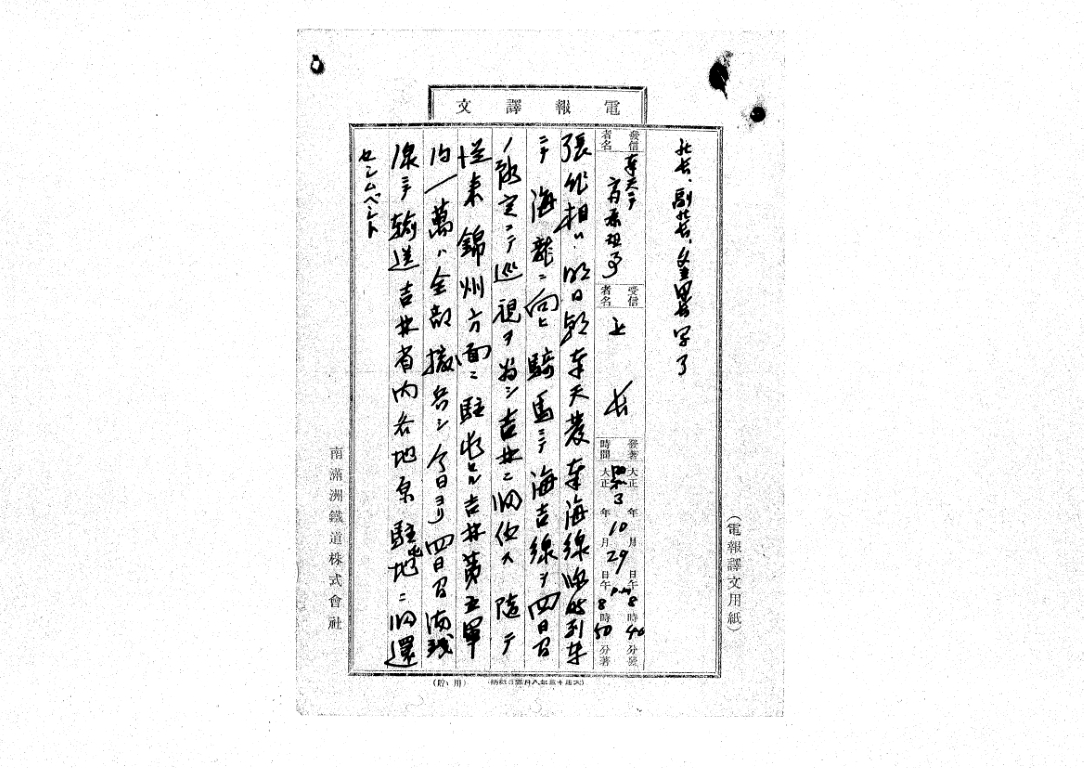 電報譯文
社長、副社長、
發信者名
奉天ニテ
受信者名
社長
發著時間
大正 年 月 日午 時 分發
大正 年 月 日午 時 分著
昭和3 10 29 p.m 8 40
8 50
張作相ハ明日朝奉天發奉海線
ニテ海龍ニ向ヒ騎馬ニテ海吉線ヲ四日間
ノ豫定ニテ巡視ヲ為シ吉林ニ歸任ス 隨テ
從来錦州方面ニ駐屯セル吉林第五軍
約一萬ハ全部撤兵シ今日ヨリ四日間満鉄
線ニテ輸送吉林省内各地原駐地ニ歸還
セシムベシト
南滿洲鐵道株式會社
(電報譯文用紙)